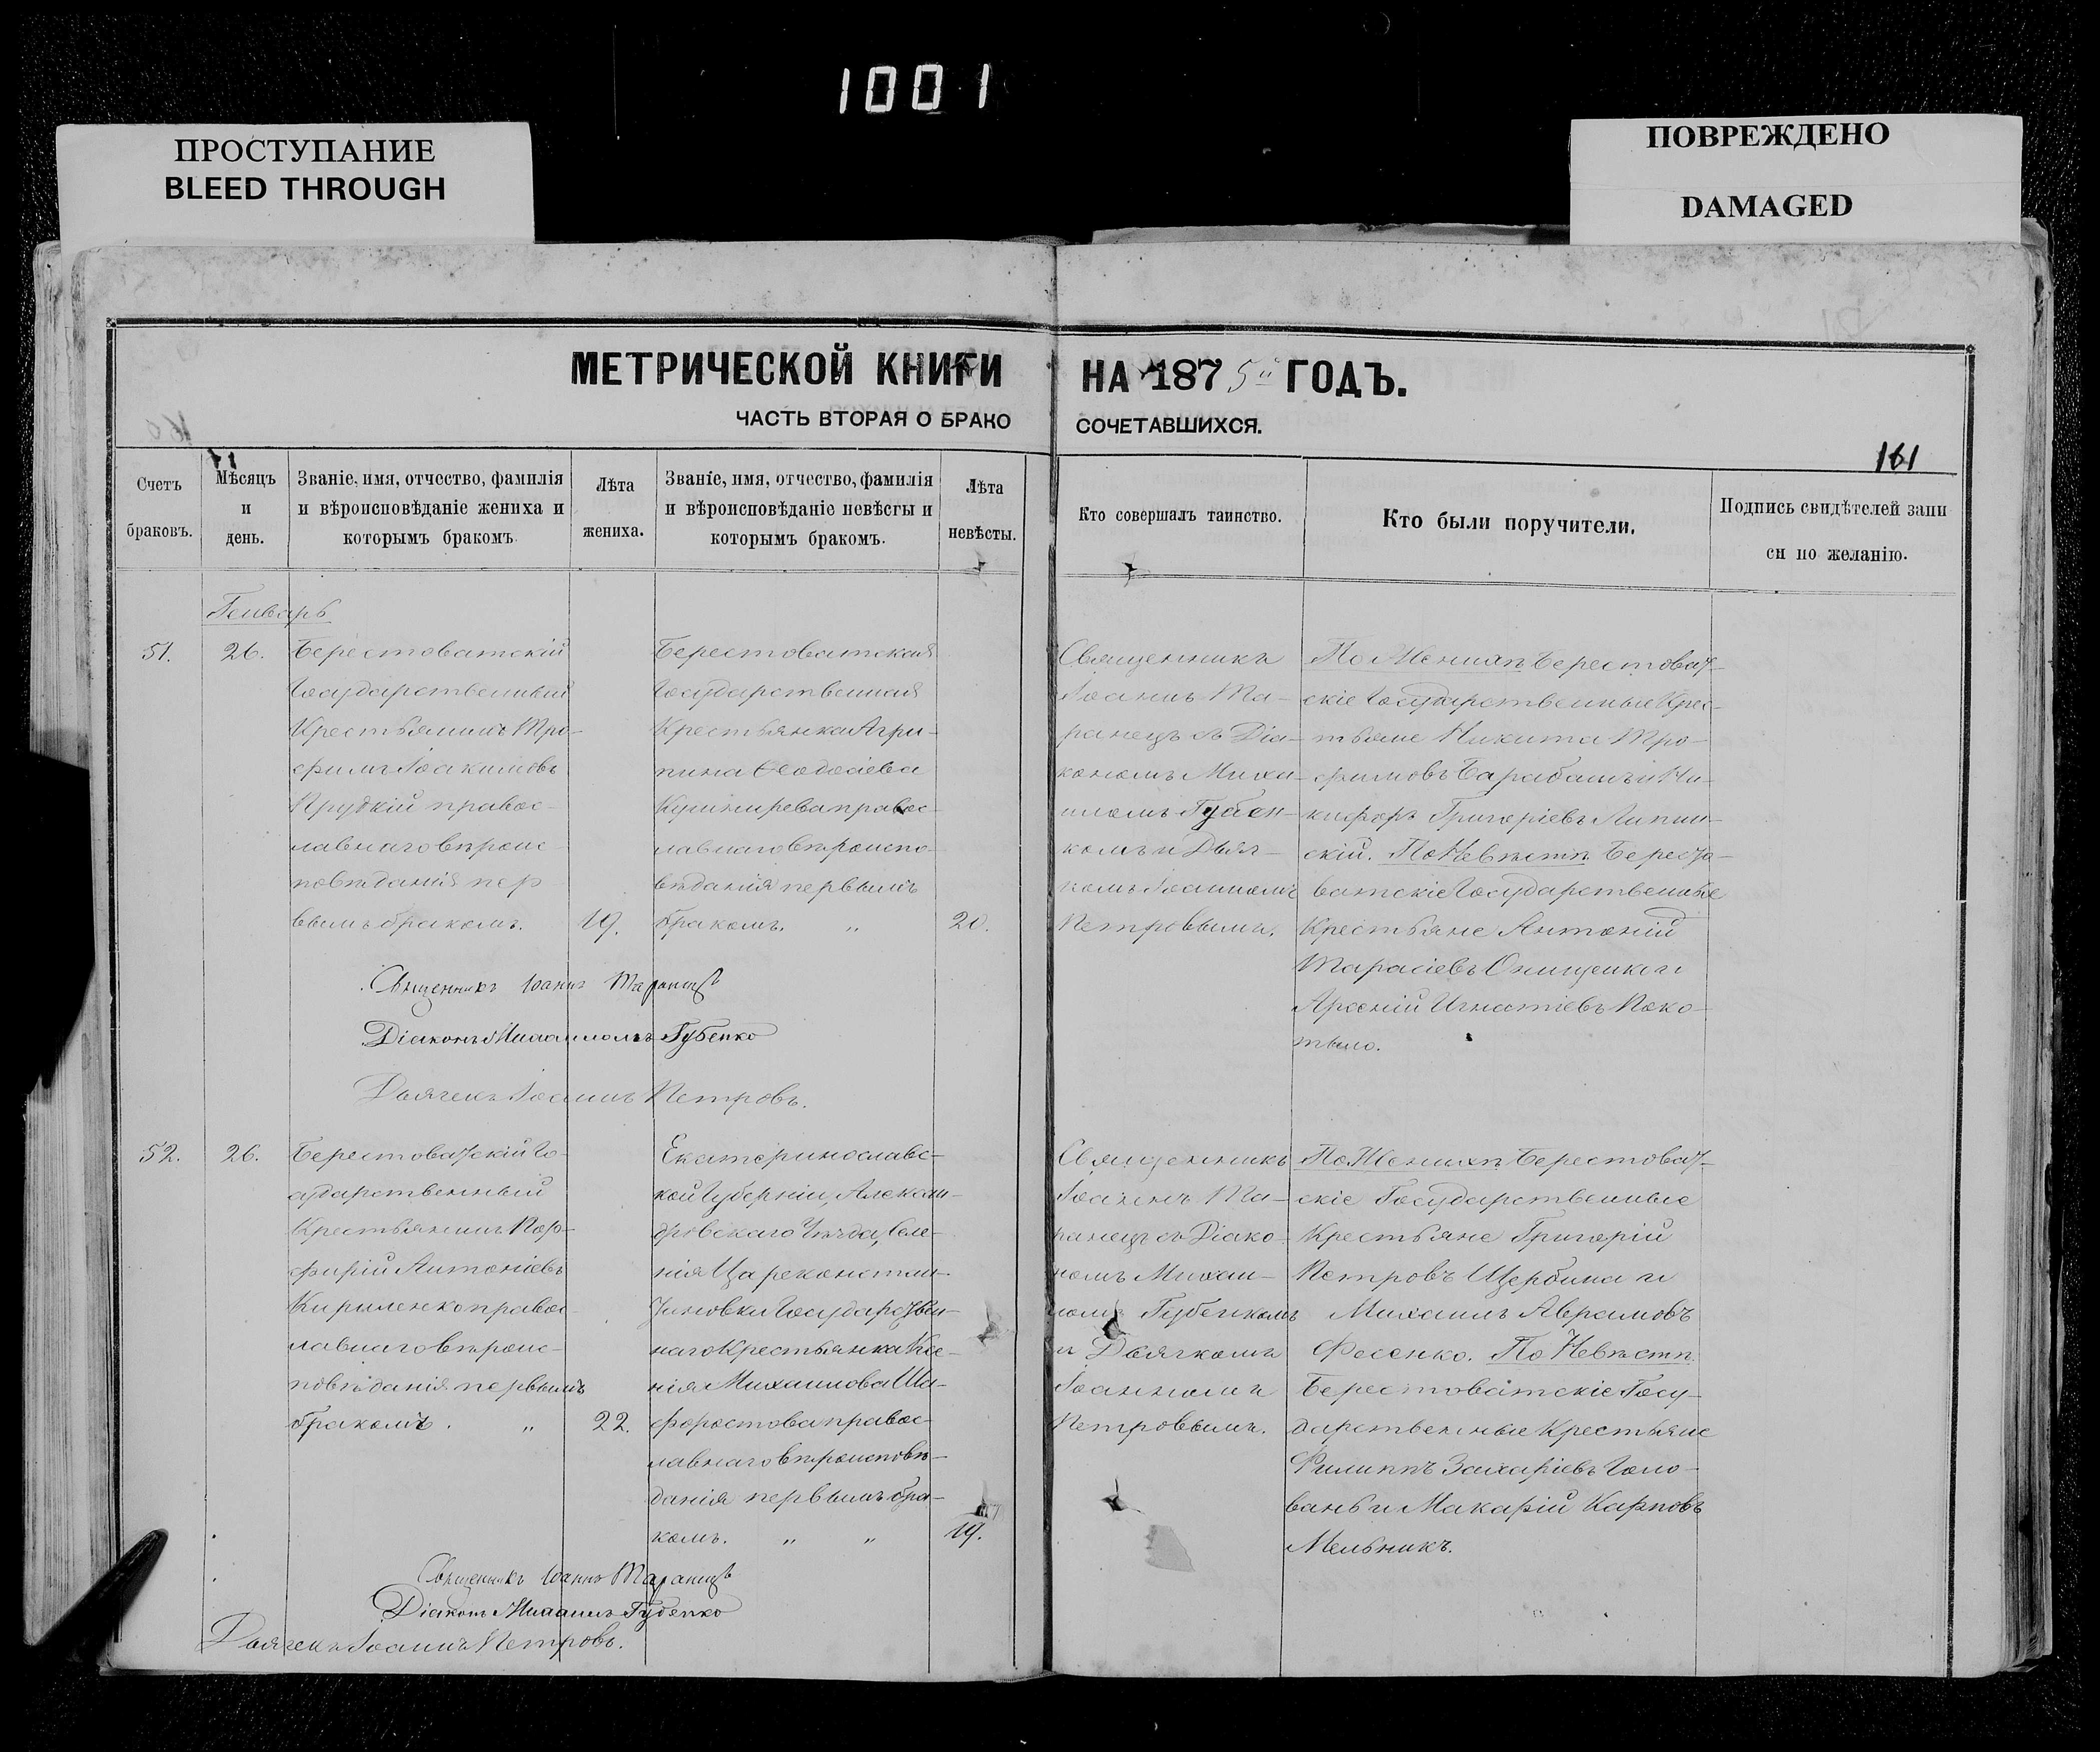 1001
ПРОСТУПАНИЕ
BLEED THROUGH
ПОВРЕЖДЕНО
DAMAGED
МЕТРИЧЕСКОЙ КНИГИ НА 1875й ГОДЪ.
ЧАСТЬ ВТОРАЯ О БРАКОСОЧЕТАВШИХСЯ.
161
Счетъ
браковъ.
Мѣсяцъ
и
день.
Званіе, имя, отчество, фамилія
и вѣроисповѣданіе жениха и
которымъ бракомъ.
Лѣта
жениха.
Званіе, имя, отчество, фамилія
и вѣроисповѣданіе невѣсты и
которымъ бракомъ.
Лѣта
невѣсты.
Кто совершалъ таинство.
Кто были поручители.
Подпись свидѣтелей запи
си по желанію.
Генварь
51.
26.
Берестоватскій
Государственный
Крестьянинъ Тро-
фимъ Іоакимовъ
Прудкій правос-
лавнаго вѣроис-
повѣданія пер
вымъ бракомъ.
19.
Берестоватская
Государственная
Крестьянка Агри-
пина Ѳеодосіева
Кушнирева правос-
лавнаго вѣроиспо-
вѣданія первымъ
бракомъ. "
20.
Священникъ
Іоаннъ Та-
ранецъ съ Діа-
кономъ Миха-
иломъ Губен-
комъ и Дьяч-
комъ Іоанномъ
Петровымъ.
По Женихѣ Берестоват-
скіе Государственные Крес-
тьяне Никита Тро-
фимовъ Барабашъ и Ни-
кифоръ Григоріевъ Липин-
скій. По Невѣстѣ Бересто-
ватскіе Государственные
Крестьяне Антоній
Тарасіевъ Онищенко и
Арсеній Игнатіевъ Поко-
тыло.
Священникъ Іоаннъ Таранецъ
Діаконъ Михаилъ Губенко
Дьячекъ Іоаннъ Петровъ.
52.
26.
Берестоватскій Го-
сударственный
Крестьянинъ Пор-
фирій Антоніевъ
Кириленко правос-
лавнаго вѣроис-
повѣданія первымъ
бракомъ. "
22.
Екатеринославс-
кой Губерніи, Алексан-
дровскаго Уѣзда, Селе-
нія Цареконстан-
тиновки Государствен-
наго Крестьянка Ксе-
нія Михаилова Ша-
форостова правос-
лавнаго вѣроисповѣ-
данія первымъ бра-
комъ. " "
19.
Священникъ
Іоаннъ Та-
ранецъ съ Діако-
номъ Михаи-
ломъ Губенкомъ
и Дьячкомъ
Іоанномъ
Петровымъ.
По Женихѣ Берестоват-
скіе Государственные
Крестьяне Григорій
Петровъ Щербина и
Михаилъ Аврамовъ
Фесенко. По Невѣстѣ
Берестоватскіе Госу-
дарственные Крестьяне
Филиппъ Захаріевъ Голо-
вань и Макарій Карповъ
Мельникъ.
Священникъ Іоаннъ Таранецъ
Діаконъ Михаилъ Губенко
Дьячекъ Іоаннъ Петровъ.